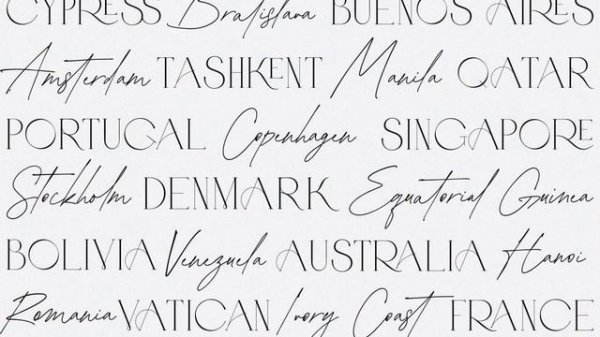 CYPRESS Bratislava BUENOS AIRES
Amsterdam TASHKENT Manila QATAR
PORTUGAL Copenhagen SINGAPORE
Stockholm DENMARK Equatorial Guinea
BOLIVIA Venezuela AUSTRALIA Hanoi
Romania VATICAN Ivory Coast FRANCE